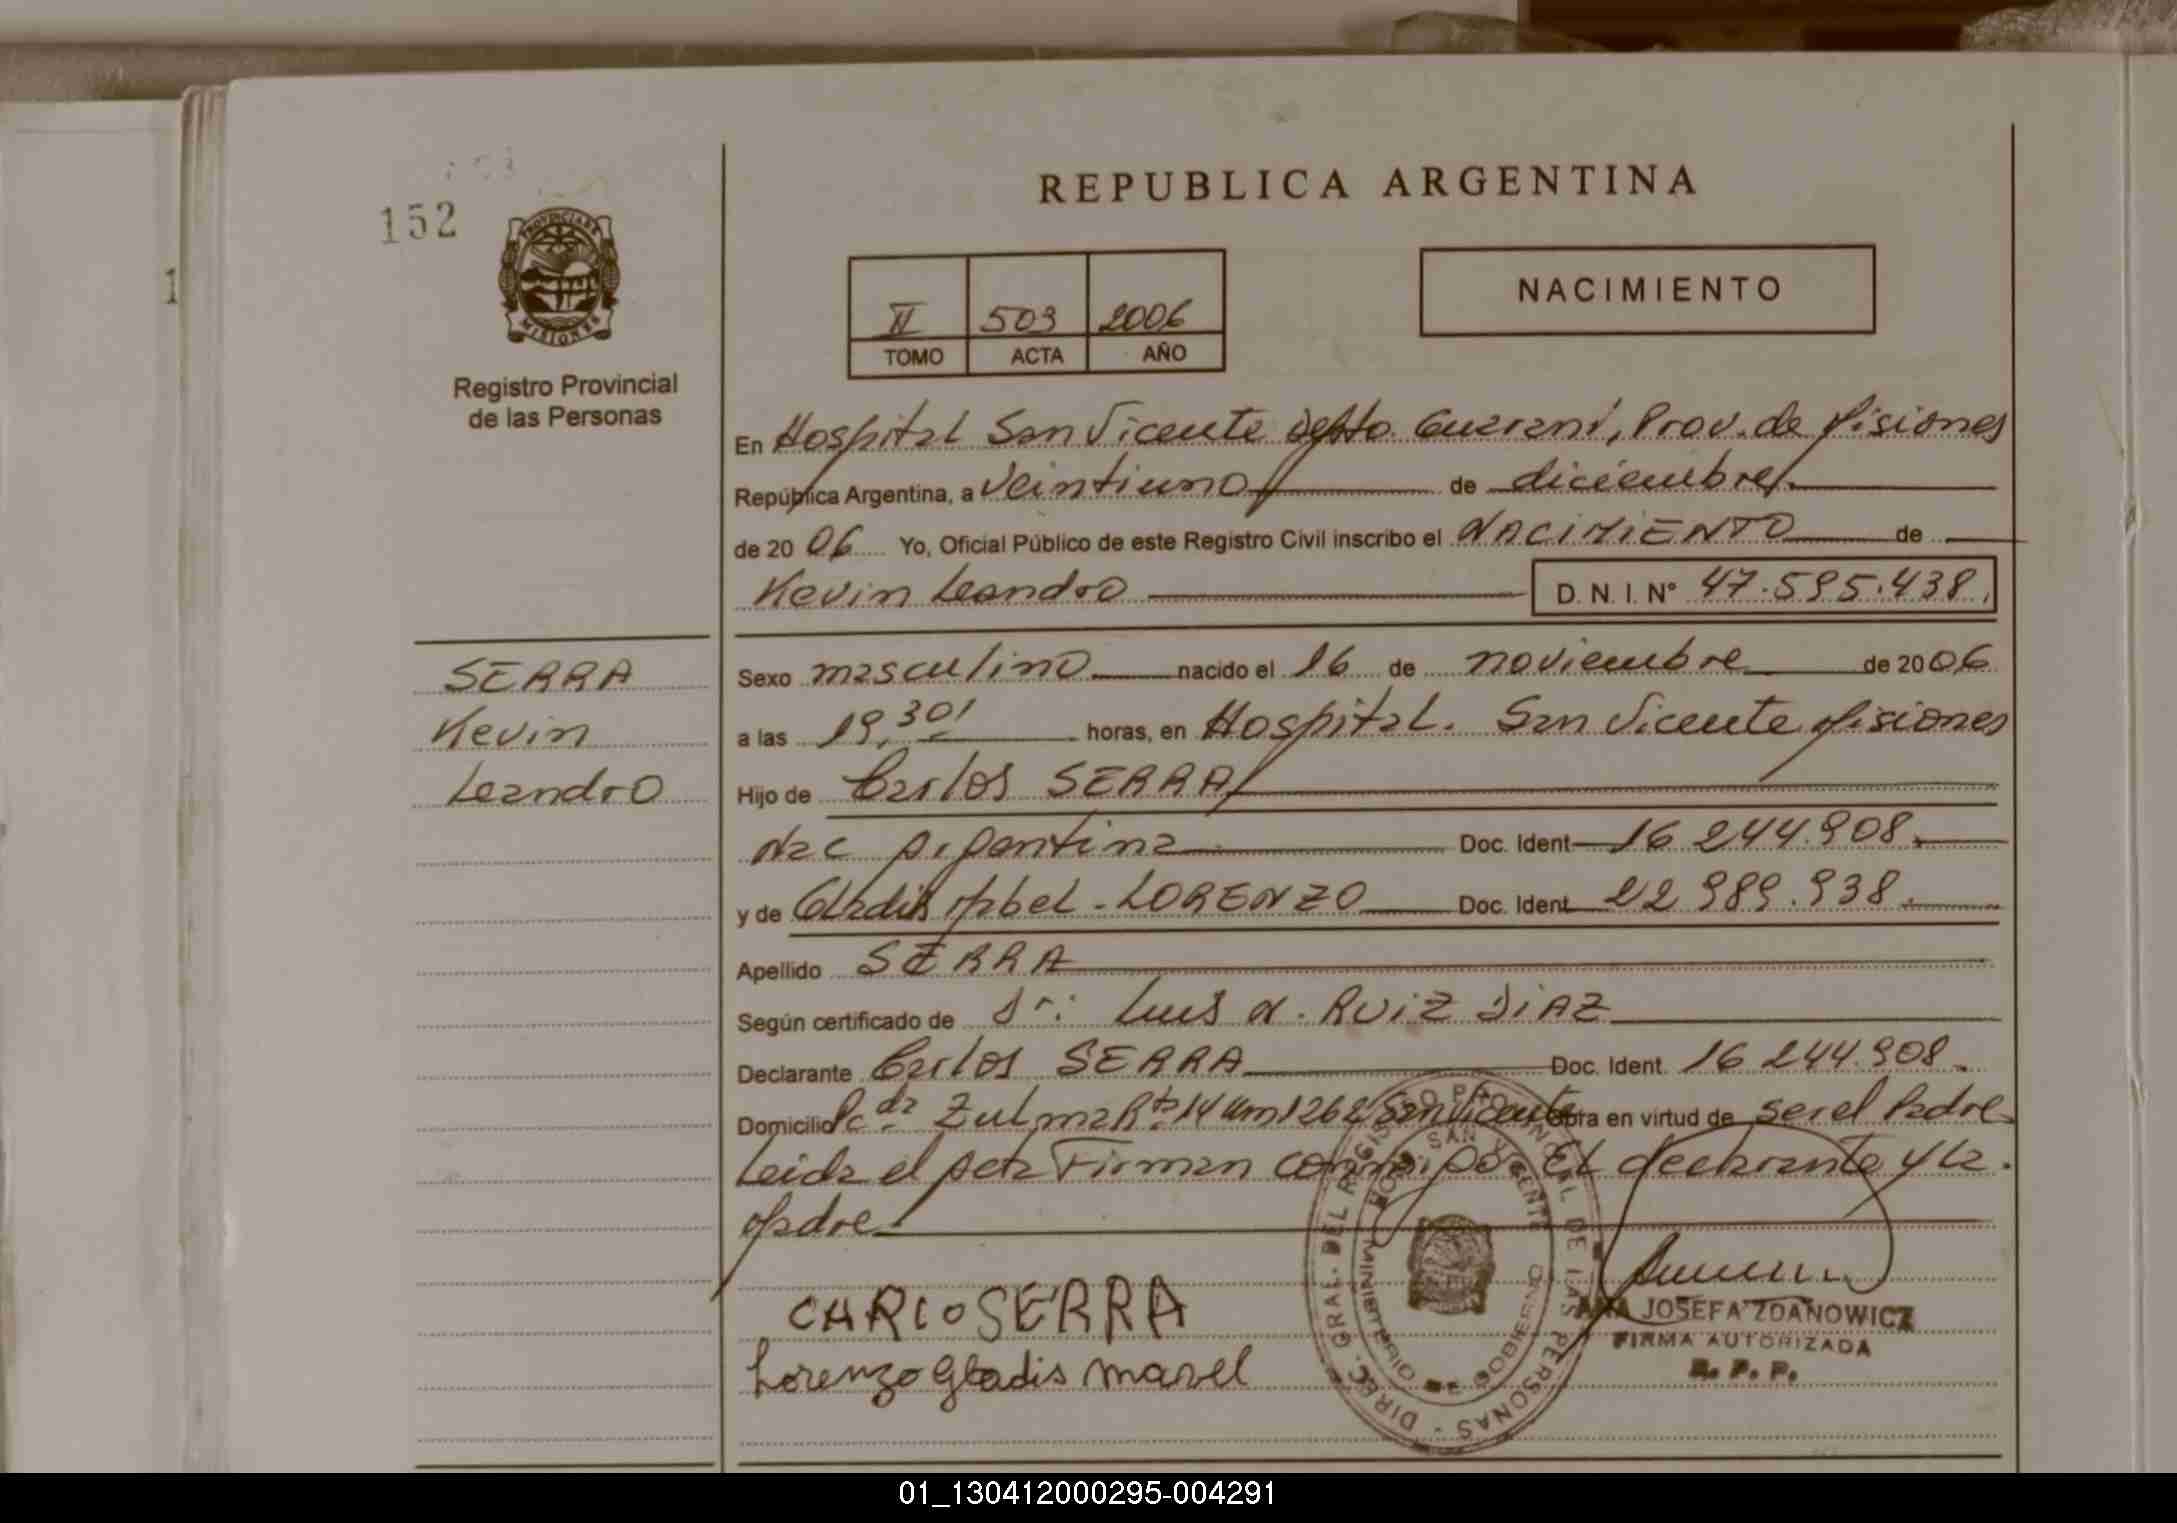 152
PROVINCIA DE
MISIONES
Registro Provincial
de las Personas
REPUBLICA ARGENTINA
II 503 2006
TOMO ACTA AÑO
NACIMIENTO
En Hospital San Vicente Depto. Guarani, Prov. de Misiones
República Argentina, a Veintiuno de diciembre
de 20 06 Yo, Oficial Público de este Registro Civil inscribo el NACIMIENTO de
Kevin Leandro D. N. I. N° 47.595.438
SERRA
Kevin
Leandro
Sexo masculino nacido el 16 de noviembre de 20 06
a las 19,30' horas, en Hospital. San Vicente Misiones
Hijo de Carlos SERRA
Nac Argentina Doc. Ident 16 244.908.
y de Gladis Mabel - LORENZO Doc. Ident 22 989.938.
Apellido SERRA
Según certificado de Dr: Luis N. RUIZ DIAZ
Declarante Carlos SERRA Doc. Ident. 16 244.908.
Domicilio Pc.da Zulma Rta 14 Km 1262 San Vicente Obra en virtud de ser el Padre
Leida el Acta Firman conmigo El declarante y la.
Madre
CARLO SERRA
Lorenzo Gladis Mavel
DIREC. GRAL. DEL REGISTRO PROVINCIAL DE LAS PERSONAS
SAN VICENTE
MINISTERIO DE GOBIERNO
ANA JOSEFA ZDANOWICZ
FIRMA AUTORIZADA
R. P. P.
01_130412000295-004291